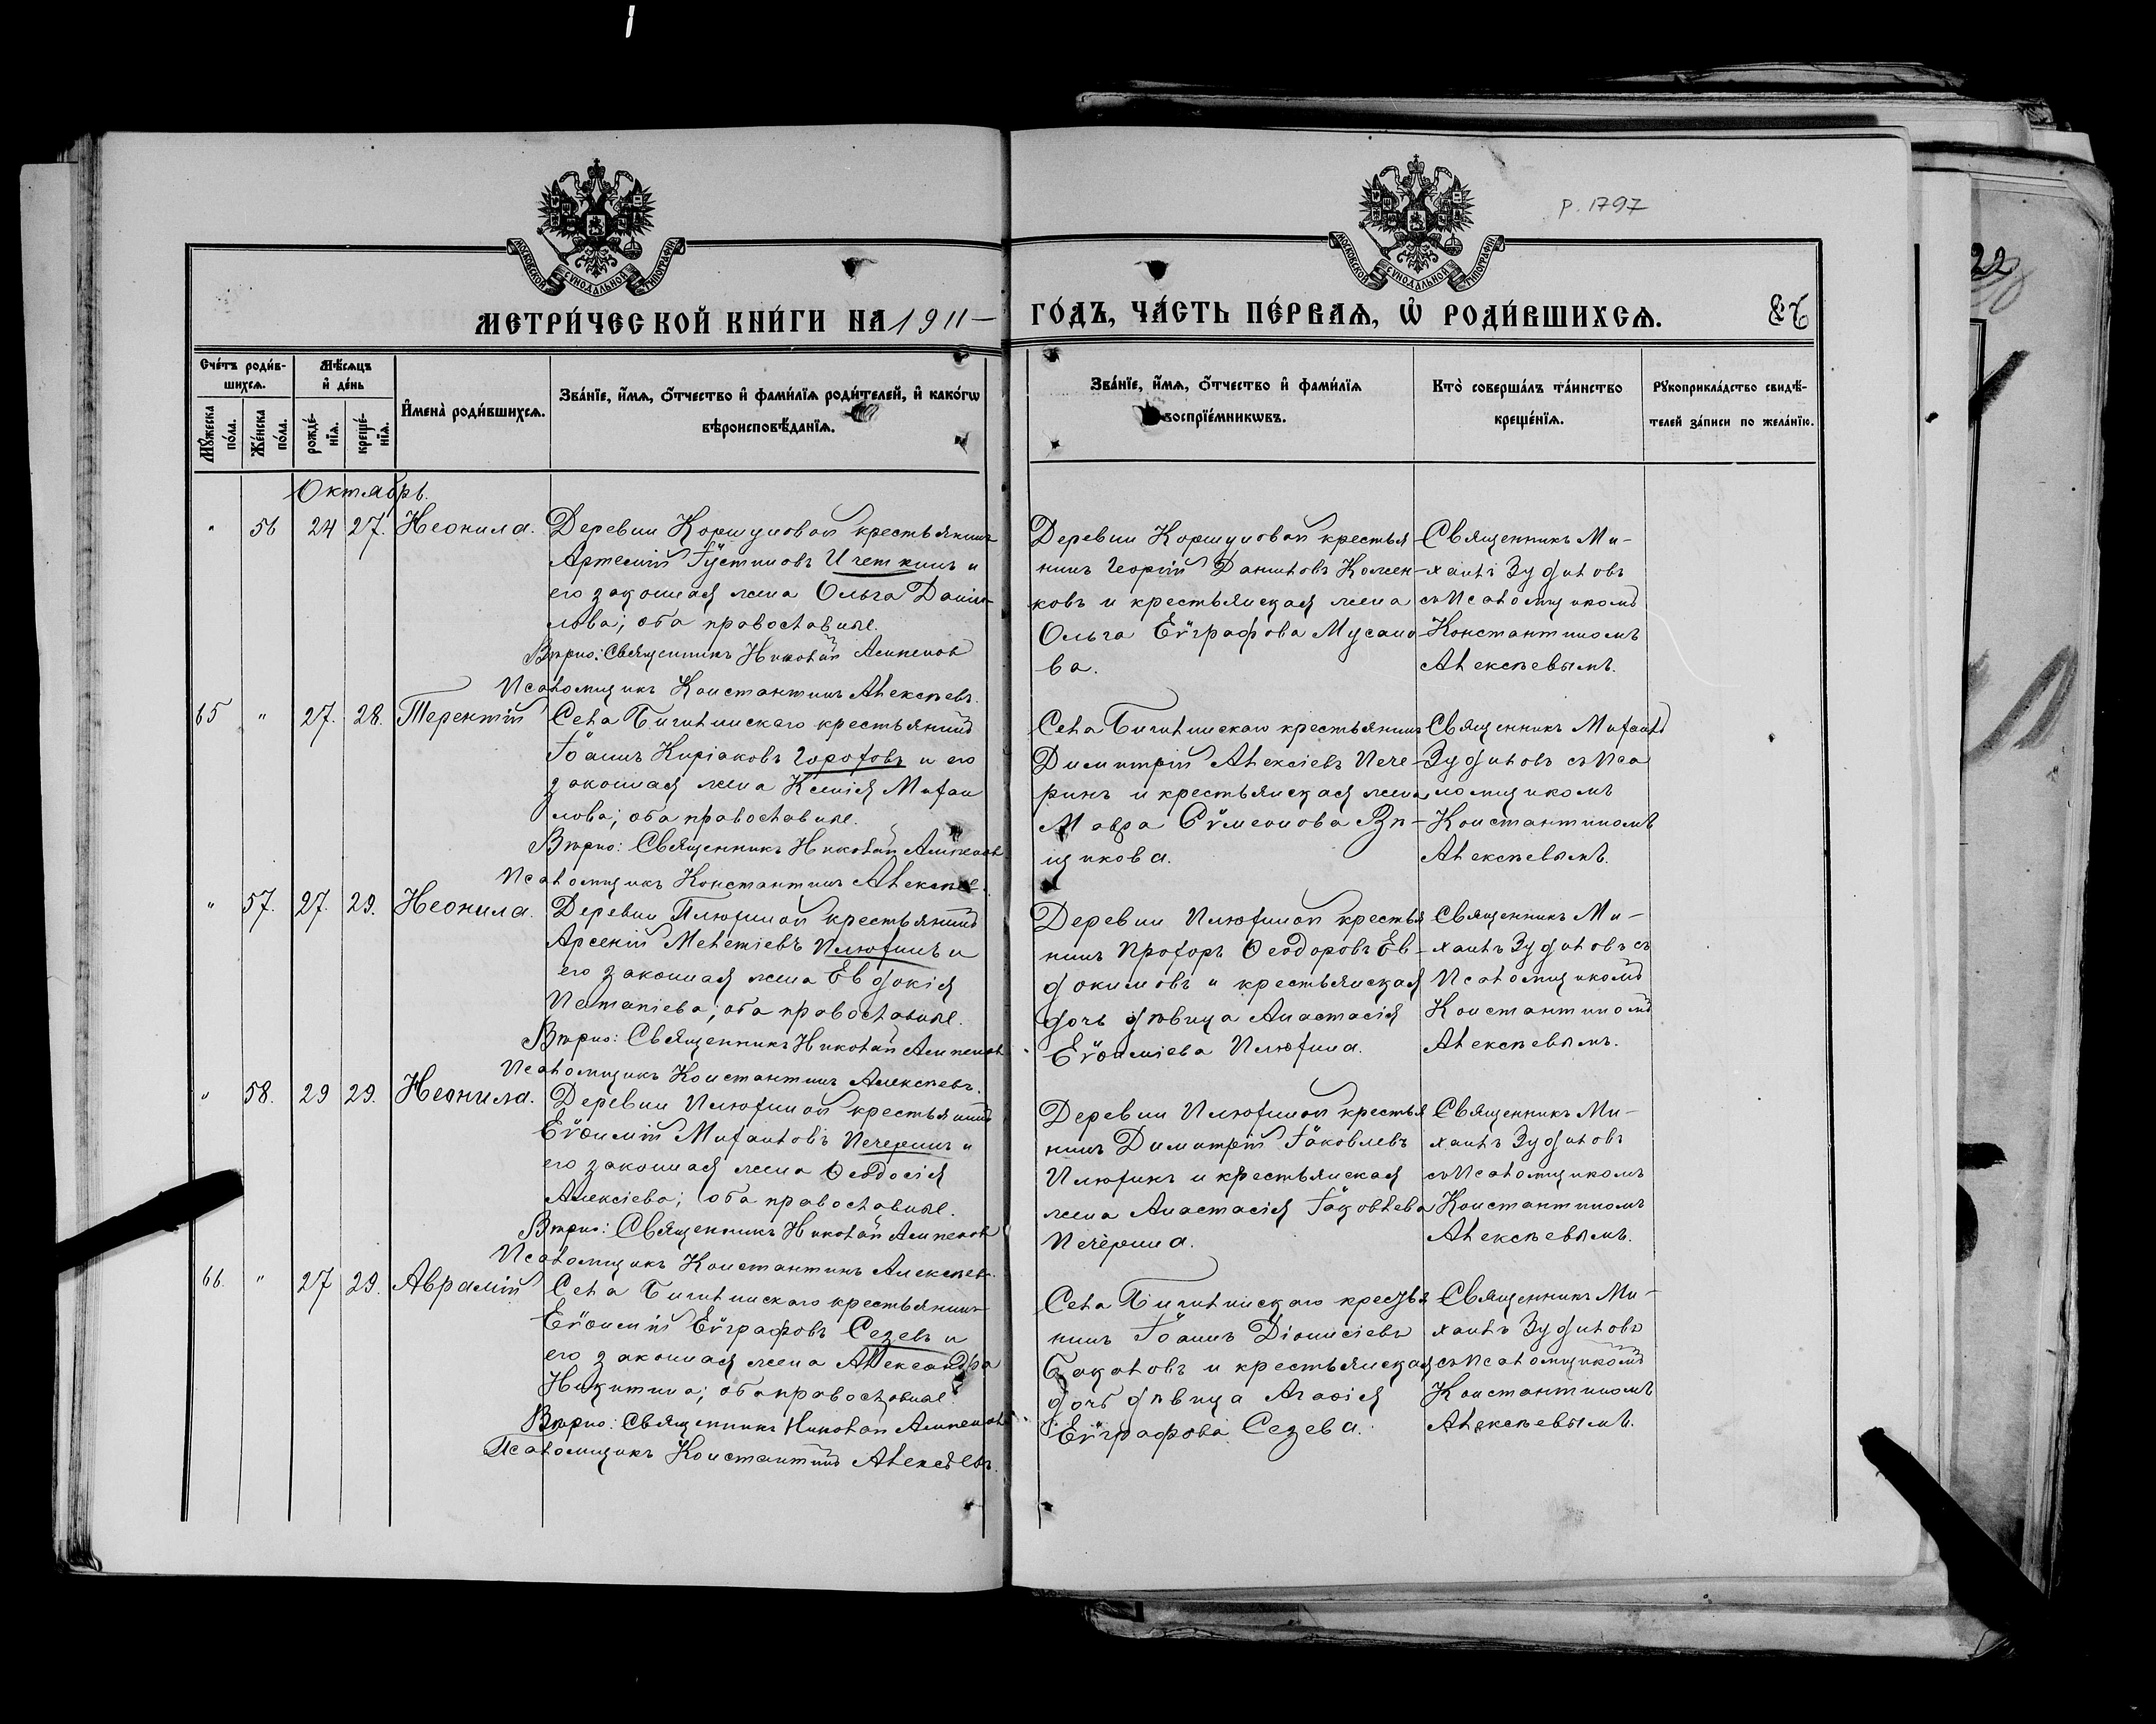 р. 1797
МОСКОВСКОЙ СѴНОДАЛЬНОЙ ТИПОГРАФІИ
МОСКОВСКОЙ СѴНОДАЛЬНОЙ ТИПОГРАФІИ
МЕТРИ́ЧЕСКОЙ КНИ́ГИ НА 1911 –
ГО́ДЪ, ЧА́СТЬ ПЕ́РВАѦ, Ѡ҆ РОДИ́ВШИХСѦ.
Сче́тъ роди́в-
шихсѧ.
Мꙋ́жеска по́ла.
Же́нска по́ла.
Мѣ́сѧцъ
и҆ де́нь
рожде́-
нїѧ.
креще́-
нїѧ.
И҆мена̀ роди́вшихсѧ.
Зва́нїе, и҆́мѧ, ѻ҆́тчество и҆ фами́лїѧ роди́телей, и҆ како́гѡ
вѣроисповѣ́данїѧ.
Зва́нїе, и҆́мѧ, ѻ҆́тчество и҆ фами́лїѧ
воспрїе́мникѡвъ.
Кто̀ соверша́лъ та́инство
креще́нїѧ.
Рꙋкоприкла́дство свидѣ́-
телей за́писи по жела́нїю.
Октябрь.
" 56 24 27. Неонила.
Деревни Коршуновой крестьянинъ
Артемій Іустиновъ Ичеткинъ и
его законная жена Ольга Дани-
лова; оба православные.
Вѣрно: Священникъ Николай
Псаломщикъ Константинъ Алексѣевъ.
Деревни Коршуновой крестья-
нинъ Георгій Даниловъ
ковъ и крестьянская жена
Ольга Еѵграфова Мусано-
ва.
Священникъ Ми-
хаилъ Зудиловъ
съ Псаломщикомъ
Константиномъ
Алексѣевымъ.
65 " 27. 28. Терентій
Села Бичилинскаго крестьянинъ
Іоаннъ Киріаковъ Гороховъ и его
законная жена Ксенія Михаи
лова; оба православные.
Вѣрно: Священникъ Николай
Псаломщикъ Константинъ Алексѣев.
Села Бичилинскаго крестьянинъ
Димитрій Алексіевъ Пече-
ринъ и крестьянская жена
Мавра Сѵмеонова
щикова.
Священникъ Михаилъ
Зудиловъ съ Пса
ломщикомъ
Константиномъ
Алексѣевымъ.
" 57. 27. 29. Неонила.
Деревни Плюхиной крестьянинъ
Арсеній Мелетіевъ Плюхинъ и
его законная жена Евдокія
Патапіева; оба православные.
Вѣрно: Священникъ Николай
Псаломщикъ Константинъ Алексѣевъ.
Деревни Плюхиной крестья
нинъ Прохоръ Ѳеодоровъ Ев-
докимовъ и крестьянская
дочь дѣвица Анастасія
Еѵѳиміева Плюхина.
Священникъ Ми-
хаилъ Зудиловъ съ
Псаломщикомъ
Константиномъ
Алексѣевымъ.
" 58. 29 29. Неонила.
Деревни Плюхиной крестьянинъ
Еѵѳимій Михаиловъ Печеринъ и
его законная жена Ѳеодосія
Алексіева; оба православные.
Вѣрно: Священникъ Николай
Псаломщикъ Константинъ Алексѣев.
Деревни Плюхиной крестья
нинъ Димитрій Іаковлевъ
Плюхинъ и крестьянская
жена Анастасія Іаковлева
Печерина.
Священникъ Ми-
хаилъ Зудиловъ
съ Псаломщикомъ
Константиномъ
Алексѣевымъ.
66. " 27 29. Аврамій
Села Бичилинскаго крестьянинъ
Еѵѳимій Еѵграфовъ Сезевъ и
его законная жена Александра
Никитина; оба православные.
Вѣрно: Священникъ Николай
Псаломщикъ Константинъ Алексѣевъ.
Села Бичилинскаго крестья
нинъ Іоаннъ Діонисіевъ
Бакаловъ и крестьянская
дочь дѣвица Агаѳія
Еѵграфова Сезева.
Священникъ Ми-
хаилъ Зудиловъ
съ Псаломщикомъ
Константиномъ
Алексѣевымъ.